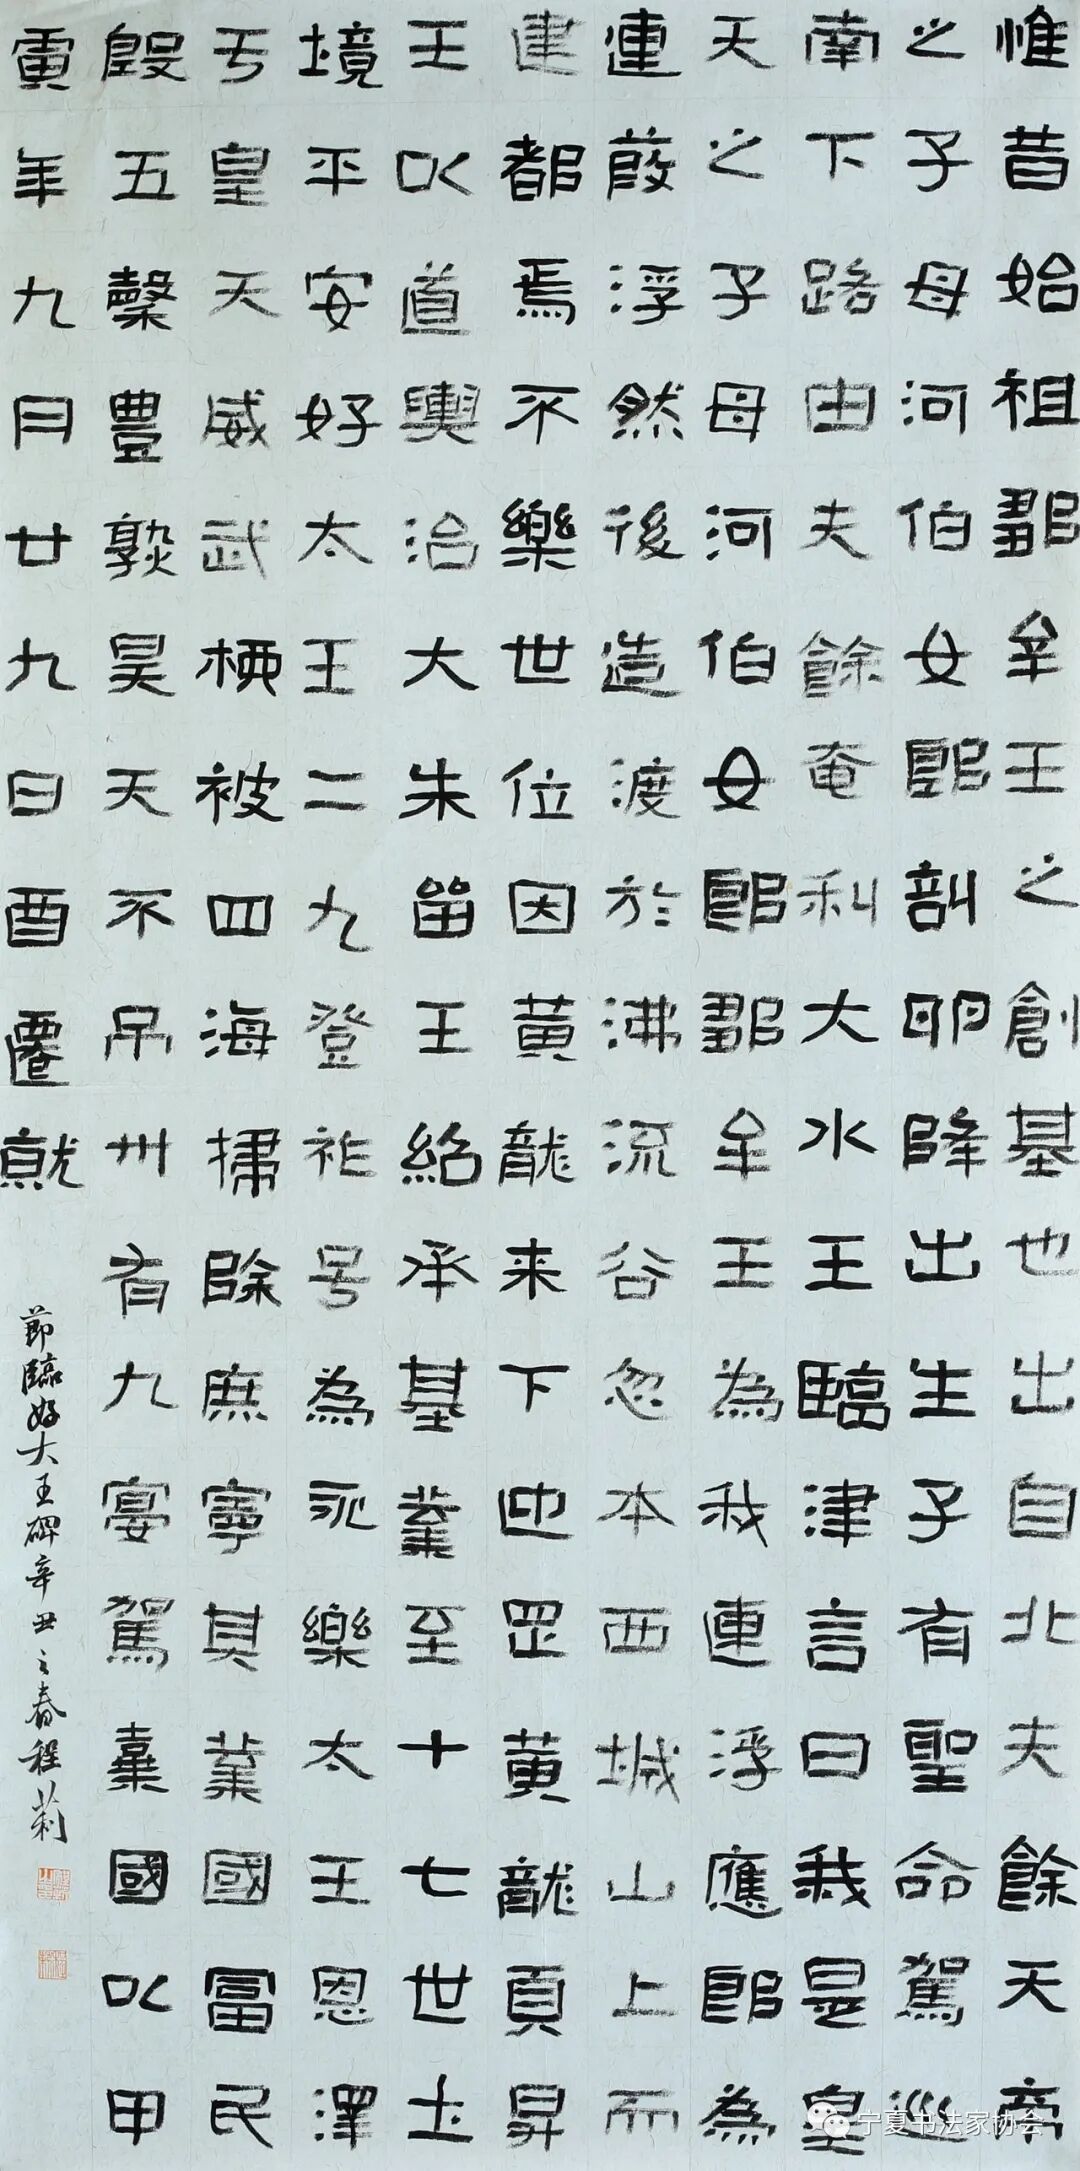 惟昔始祖鄒牟王之創基也出自北夫餘天帝
之子母河伯女郎剖卵降出生子有聖命駕巡
南下路由夫餘奄利大水王臨津言曰我是皇
天之子母河伯女郎鄒牟王為我連浮應即為
連葭浮然後造渡於沸流谷忽本西城山上而
建都焉不樂世位因黃龍来下迎罡黃龍頁昇
王以道輿治大朱留王紹承基業至十七世土
境平安好太王二九登祚号為永樂太王恩澤
于皇天威武栖被四海掃除庶寧其業國富民
殷五穀豊熟昊天不弔卅有九宴駕棄國以甲
寅年九月廿九日酉遷就
節臨好大王碑辛丑之春程莉
宁夏书法家协会